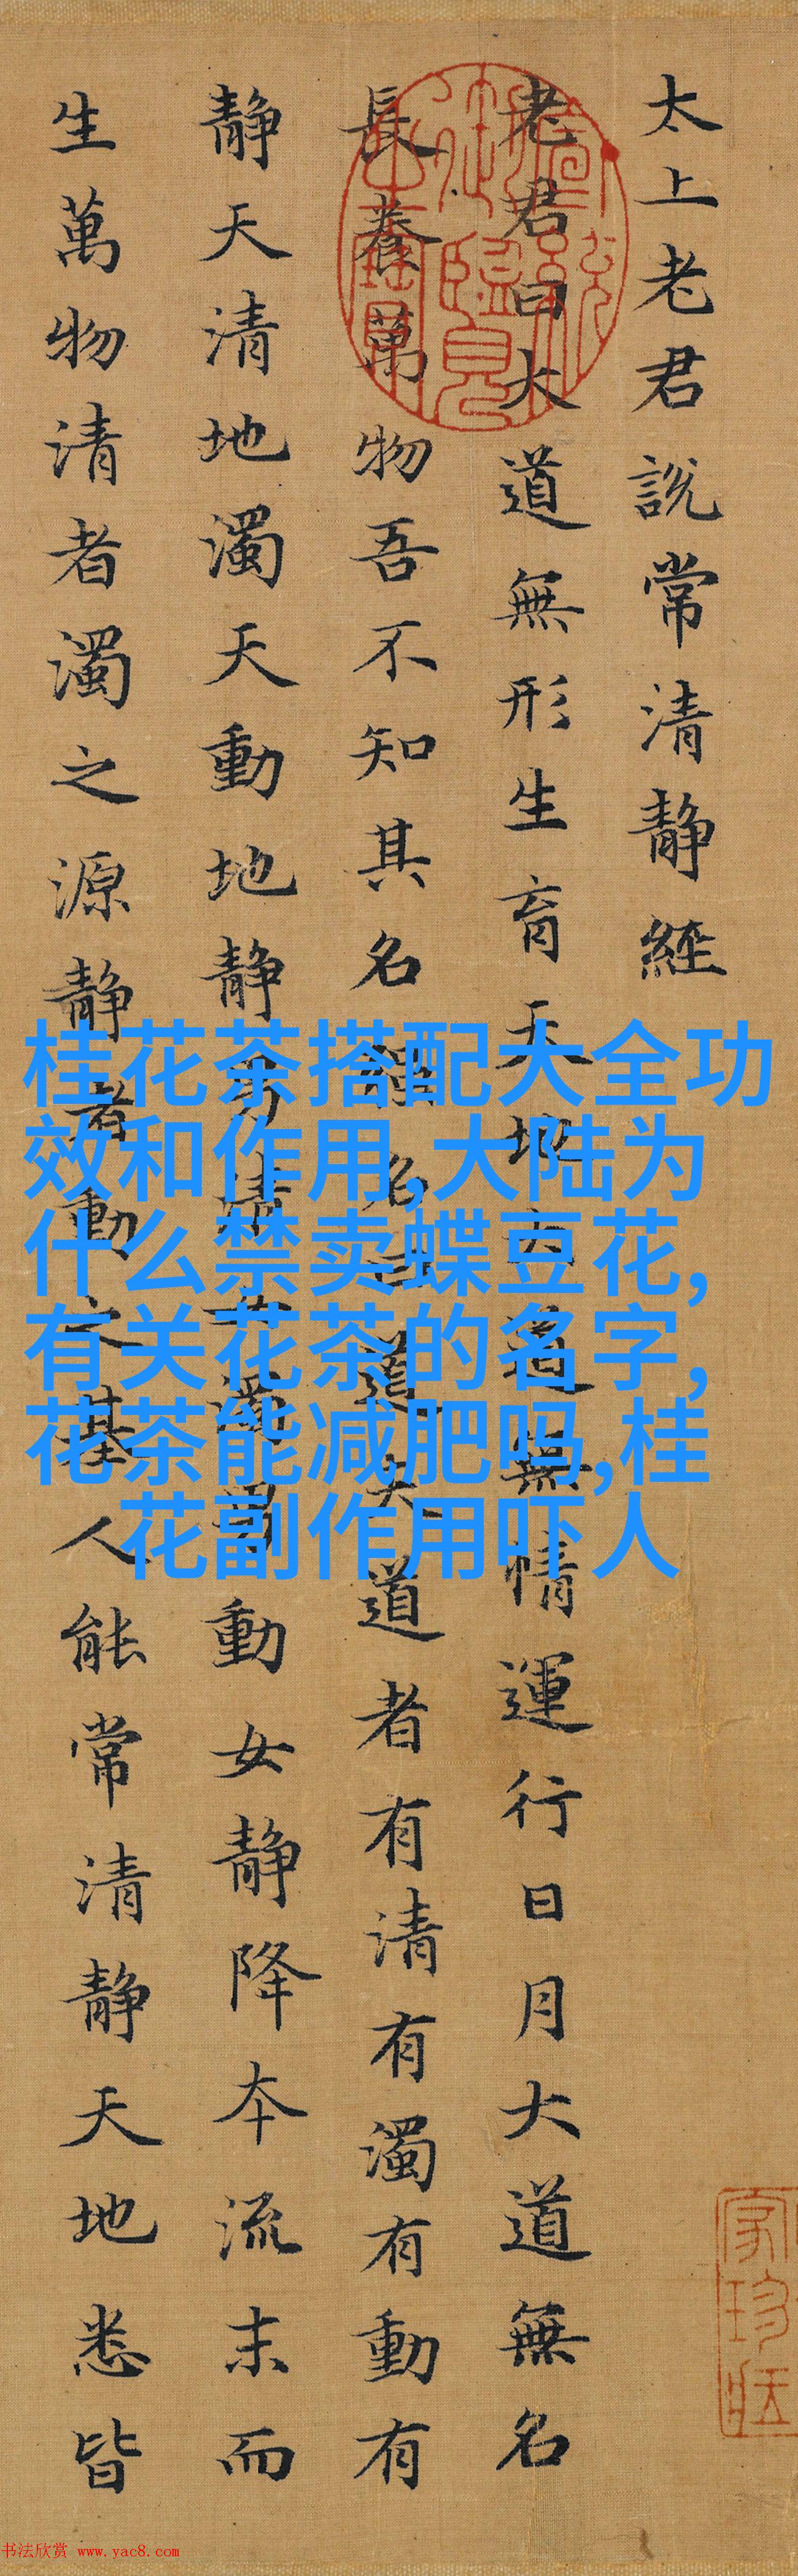 太上老君說常清静經
老君曰大道無形生育天地大道無情運行日月大道無名
長養萬物吾不知其名强名曰道夫道者有清有濁有動有
静天清地濁天動地静男清女濁男動女静降本流末而
生萬物清者濁之源静者動之基人能常清静天地悉皆
宣統御覽之寶
桂花茶搭配大全功
效和作用,大陆为
什么禁卖蝶豆花,
有关花茶的名字,
花茶能减肥吗,桂
花副作用吓人
书法欣赏 www.yac8.com